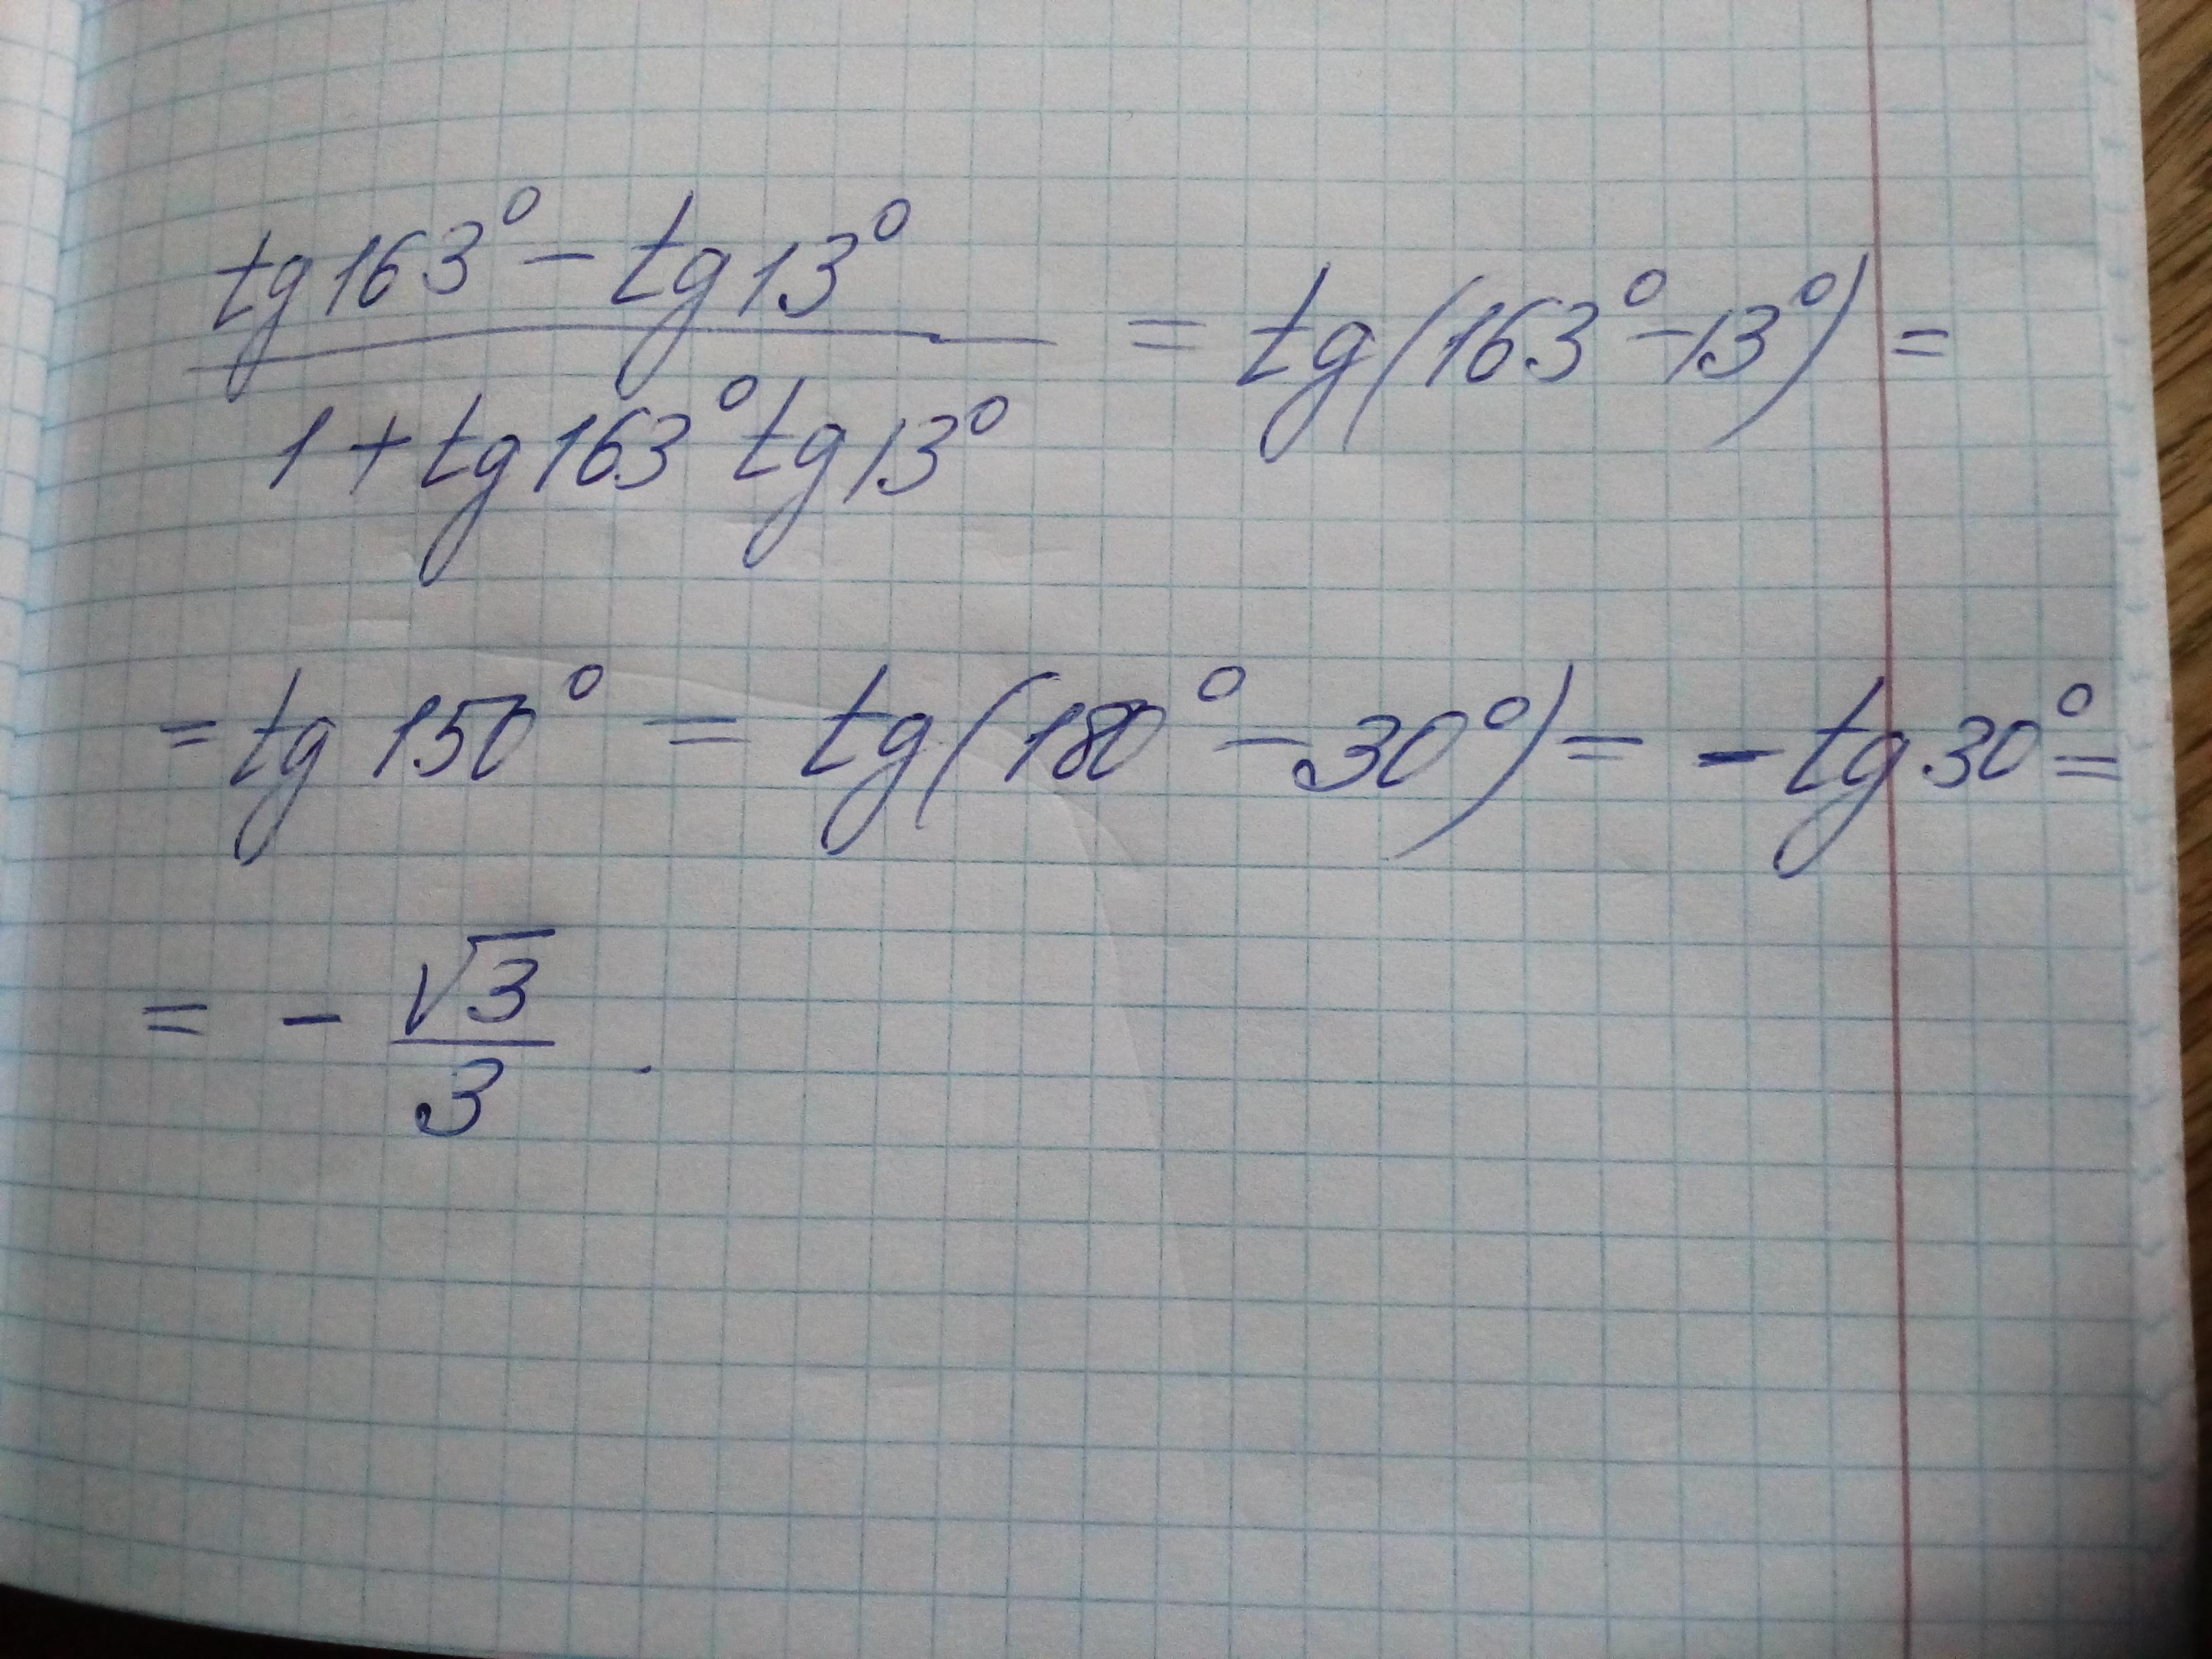 (tg 163° - tg 13°) / (1 + tg 163° tg 13°) = tg (163° - 13°) =
= tg 150° = tg (180° - 30°) = - tg 30° =
= - √3 / 3 .